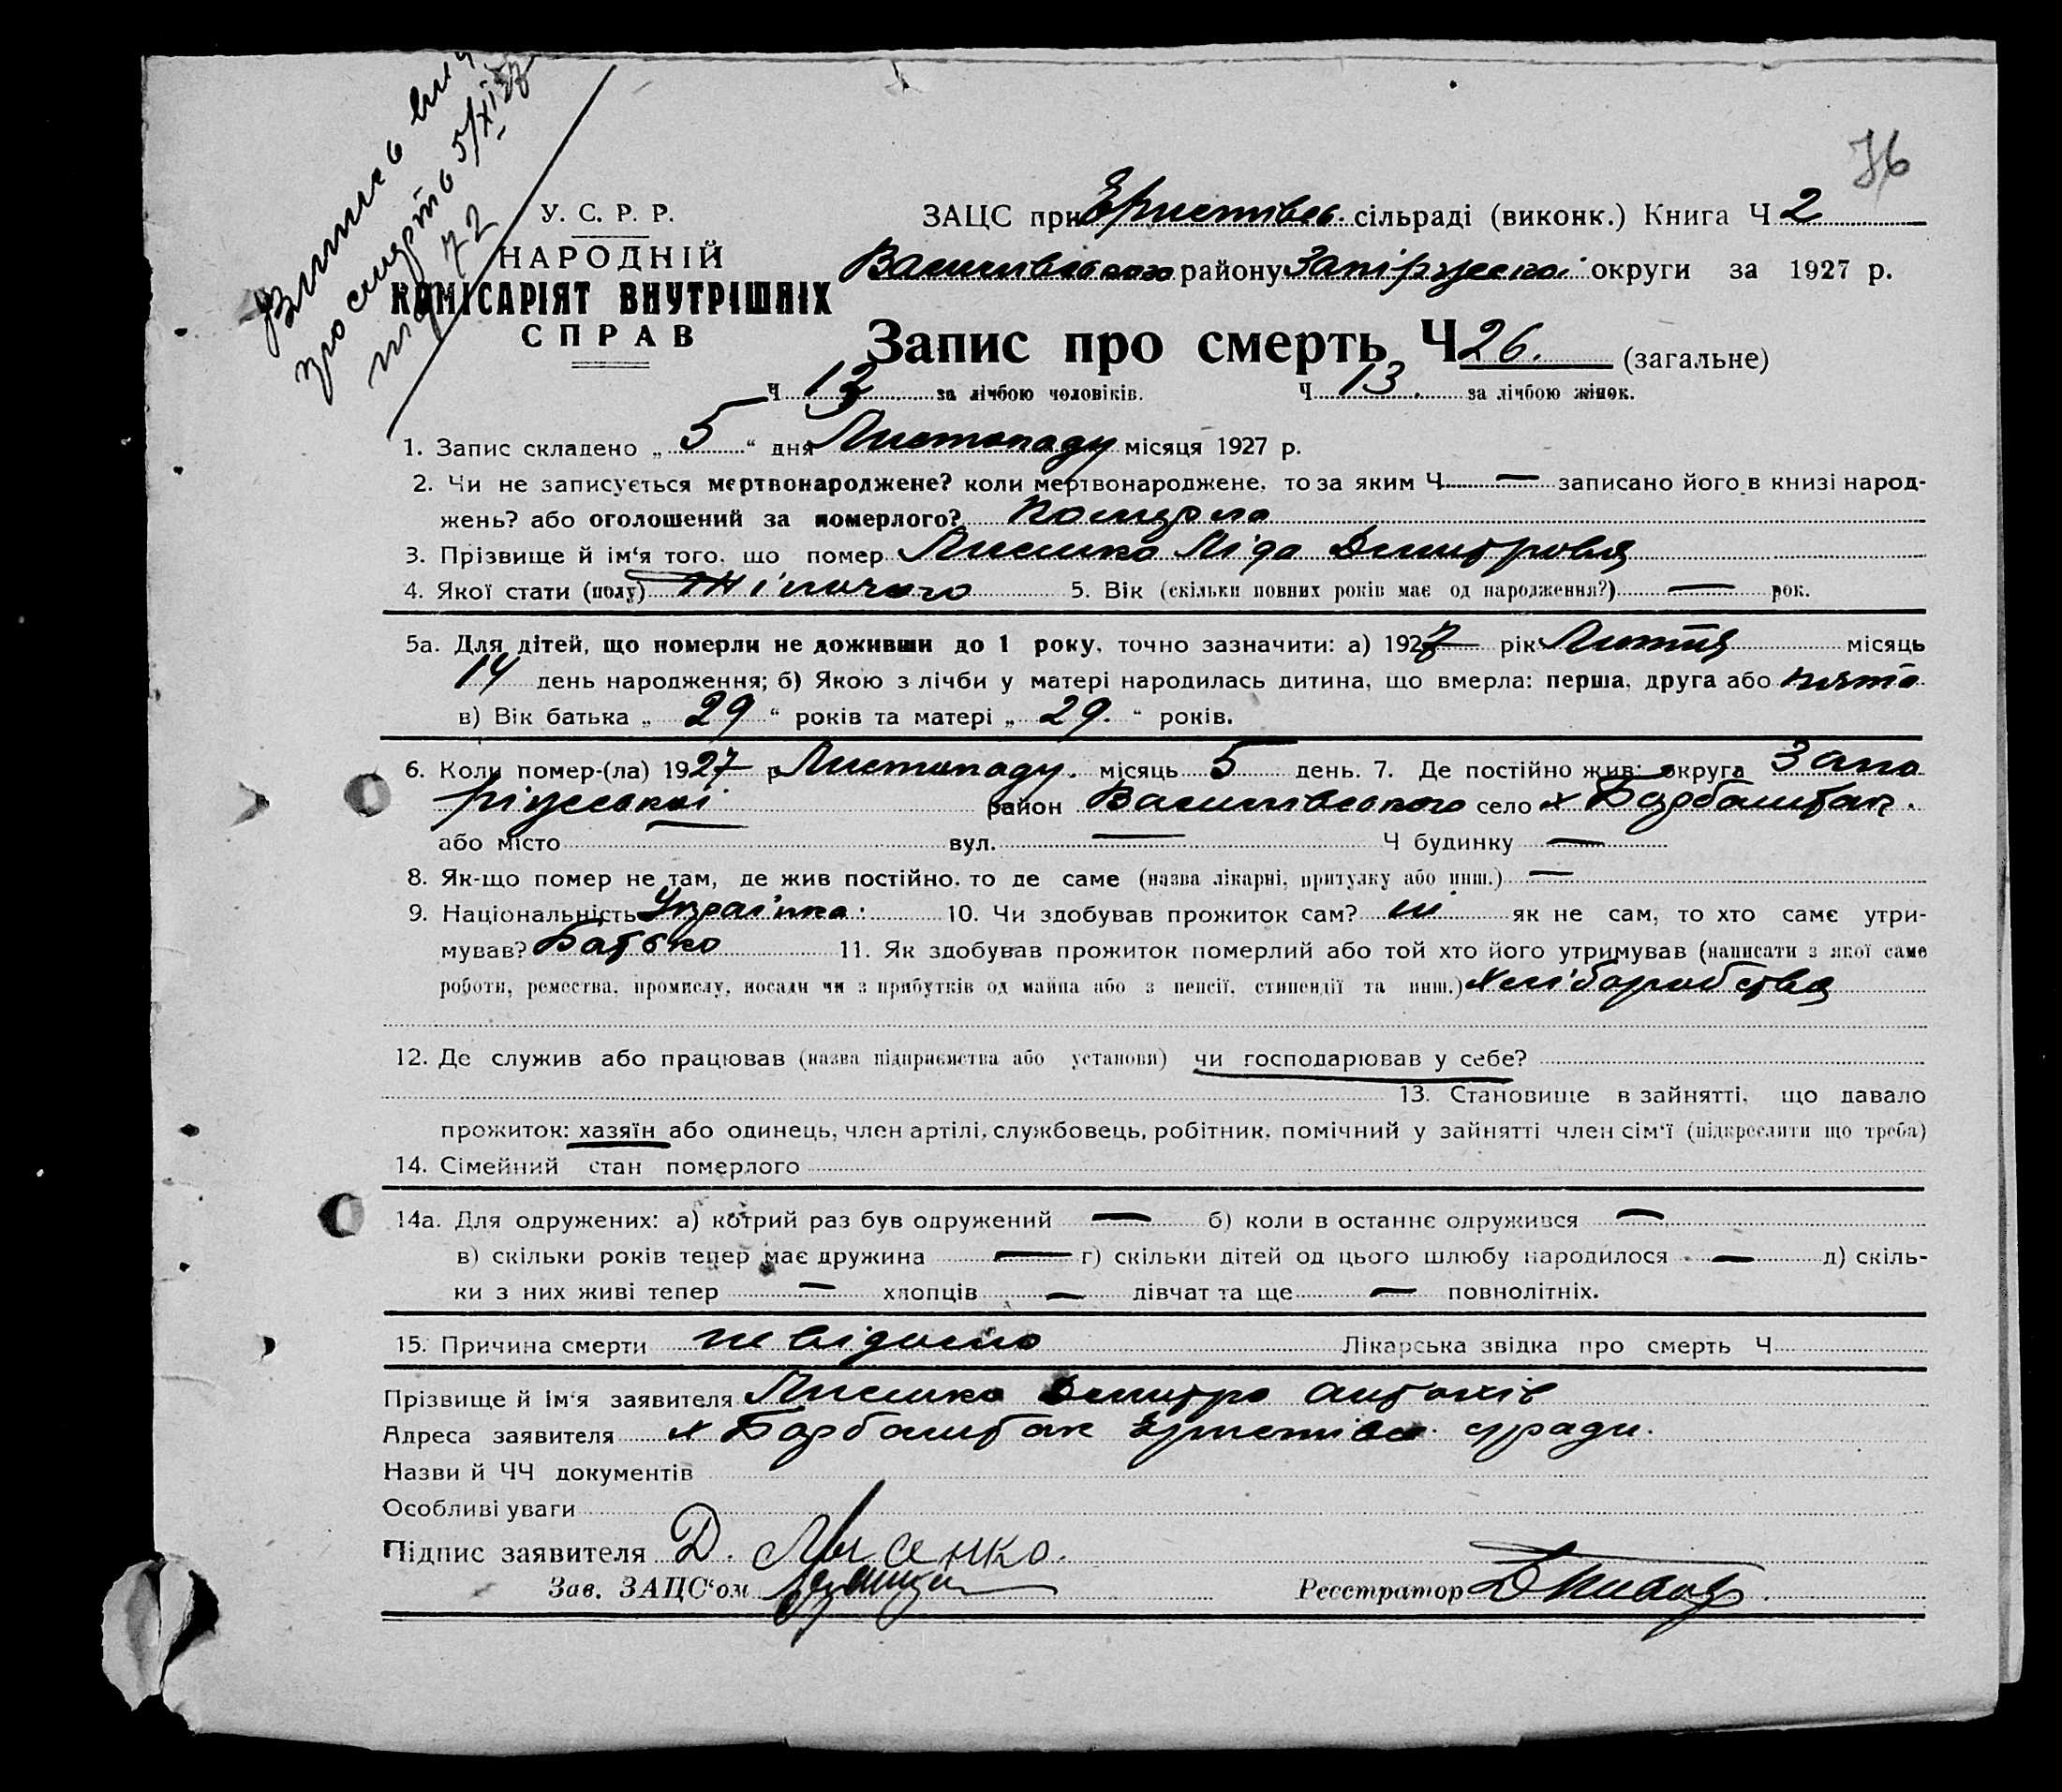 Випись
про смерть 5/XI 27
під 72
76
У. С. Р. Р.
НАРОДНІЙ
КОМІСАРІЯТ ВНУТРІШНІХ
СПРАВ
ЗАЦС при Єристівсь. сільраді (виконк.) Книга Ч 2
Василівського району Запірізської округи за 1927 р.
Запис про смерть Ч 26. (загальне)
Ч 13 за лічбою чоловіків. Ч 13. за лічбою жінок.
1. Запис складено „ 5 “ дня Листопаду місяця 1927 р.
2. Чи не записується мертвонароджене? коли мертвонароджене, то за яким Ч — записано його в книзі народ-
жень? або оголошений за померлого? Померла
3. Прізвище й ім‘я того, що помер Лисенко Ліда Дмитровня
4. Якої стати (полу) Жіночого 5. Вік (скільки повних років має од народження?) — рок.
5а. Для дітей, що померли не доживши до 1 року, точно зазначити: а) 1927 рік Лютня місяць
14 день народження; б) Якою з лічби у матері народилась дитина, що вмерла: перша, друга або пята
в) Вік батька „ 29 “ років та матері „ 29. “ років.
6. Коли помер-(ла) 1927 р Листопаду. місяць 5 день. 7. Де постійно жив: округа Запо
ріжської район Василівського село х Барбаштак.
або місто — вул. — Ч будинку —
8. Як-що помер не там, де жив постійно, то де саме (назва лікарні, притулку або инш.) —
9. Національність Українка: 10. Чи здобував прожиток сам? ні як не сам, то хто саме утри-
мував? Батько 11. Як здобував прожиток померлий або той хто його утримував (написати з якої саме
роботи, ремества, промислу, посади чи з прибутків од майна або з пенсії, стипендії та инш.) Хліборобства
12. Де служив або працював (назва підприємства або установи) чи господарював у себе?
13. Становище в зайнятті, що давало
прожиток: хазяїн або одинець, член артілі, службовець, робітник, помічний у зайнятті член сім‘ї (підкреслити що треба)
14. Сімейний стан померлого
14а. Для одружених: а) котрий раз був одружений — б) коли в останнє одружився —
в) скільки років тепер має дружина — г) скільки дітей од цього шлюбу народилося — д) скіль-
ки з них живі тепер — хлопців — дівчат та ще — повнолітніх.
15. Причина смерти не відомо Лікарська звідка про смерть Ч
Прізвище й ім‘я заявителя Лисенко Дмитро Антонів
Адреса заявителя х Барбаштак Єристівсь. с/ради.
Назви й ЧЧ документів
Особливі уваги
Підпис заявителя Д. Лысенко.
Зав. ЗАЦС‘ом
Реєстратор